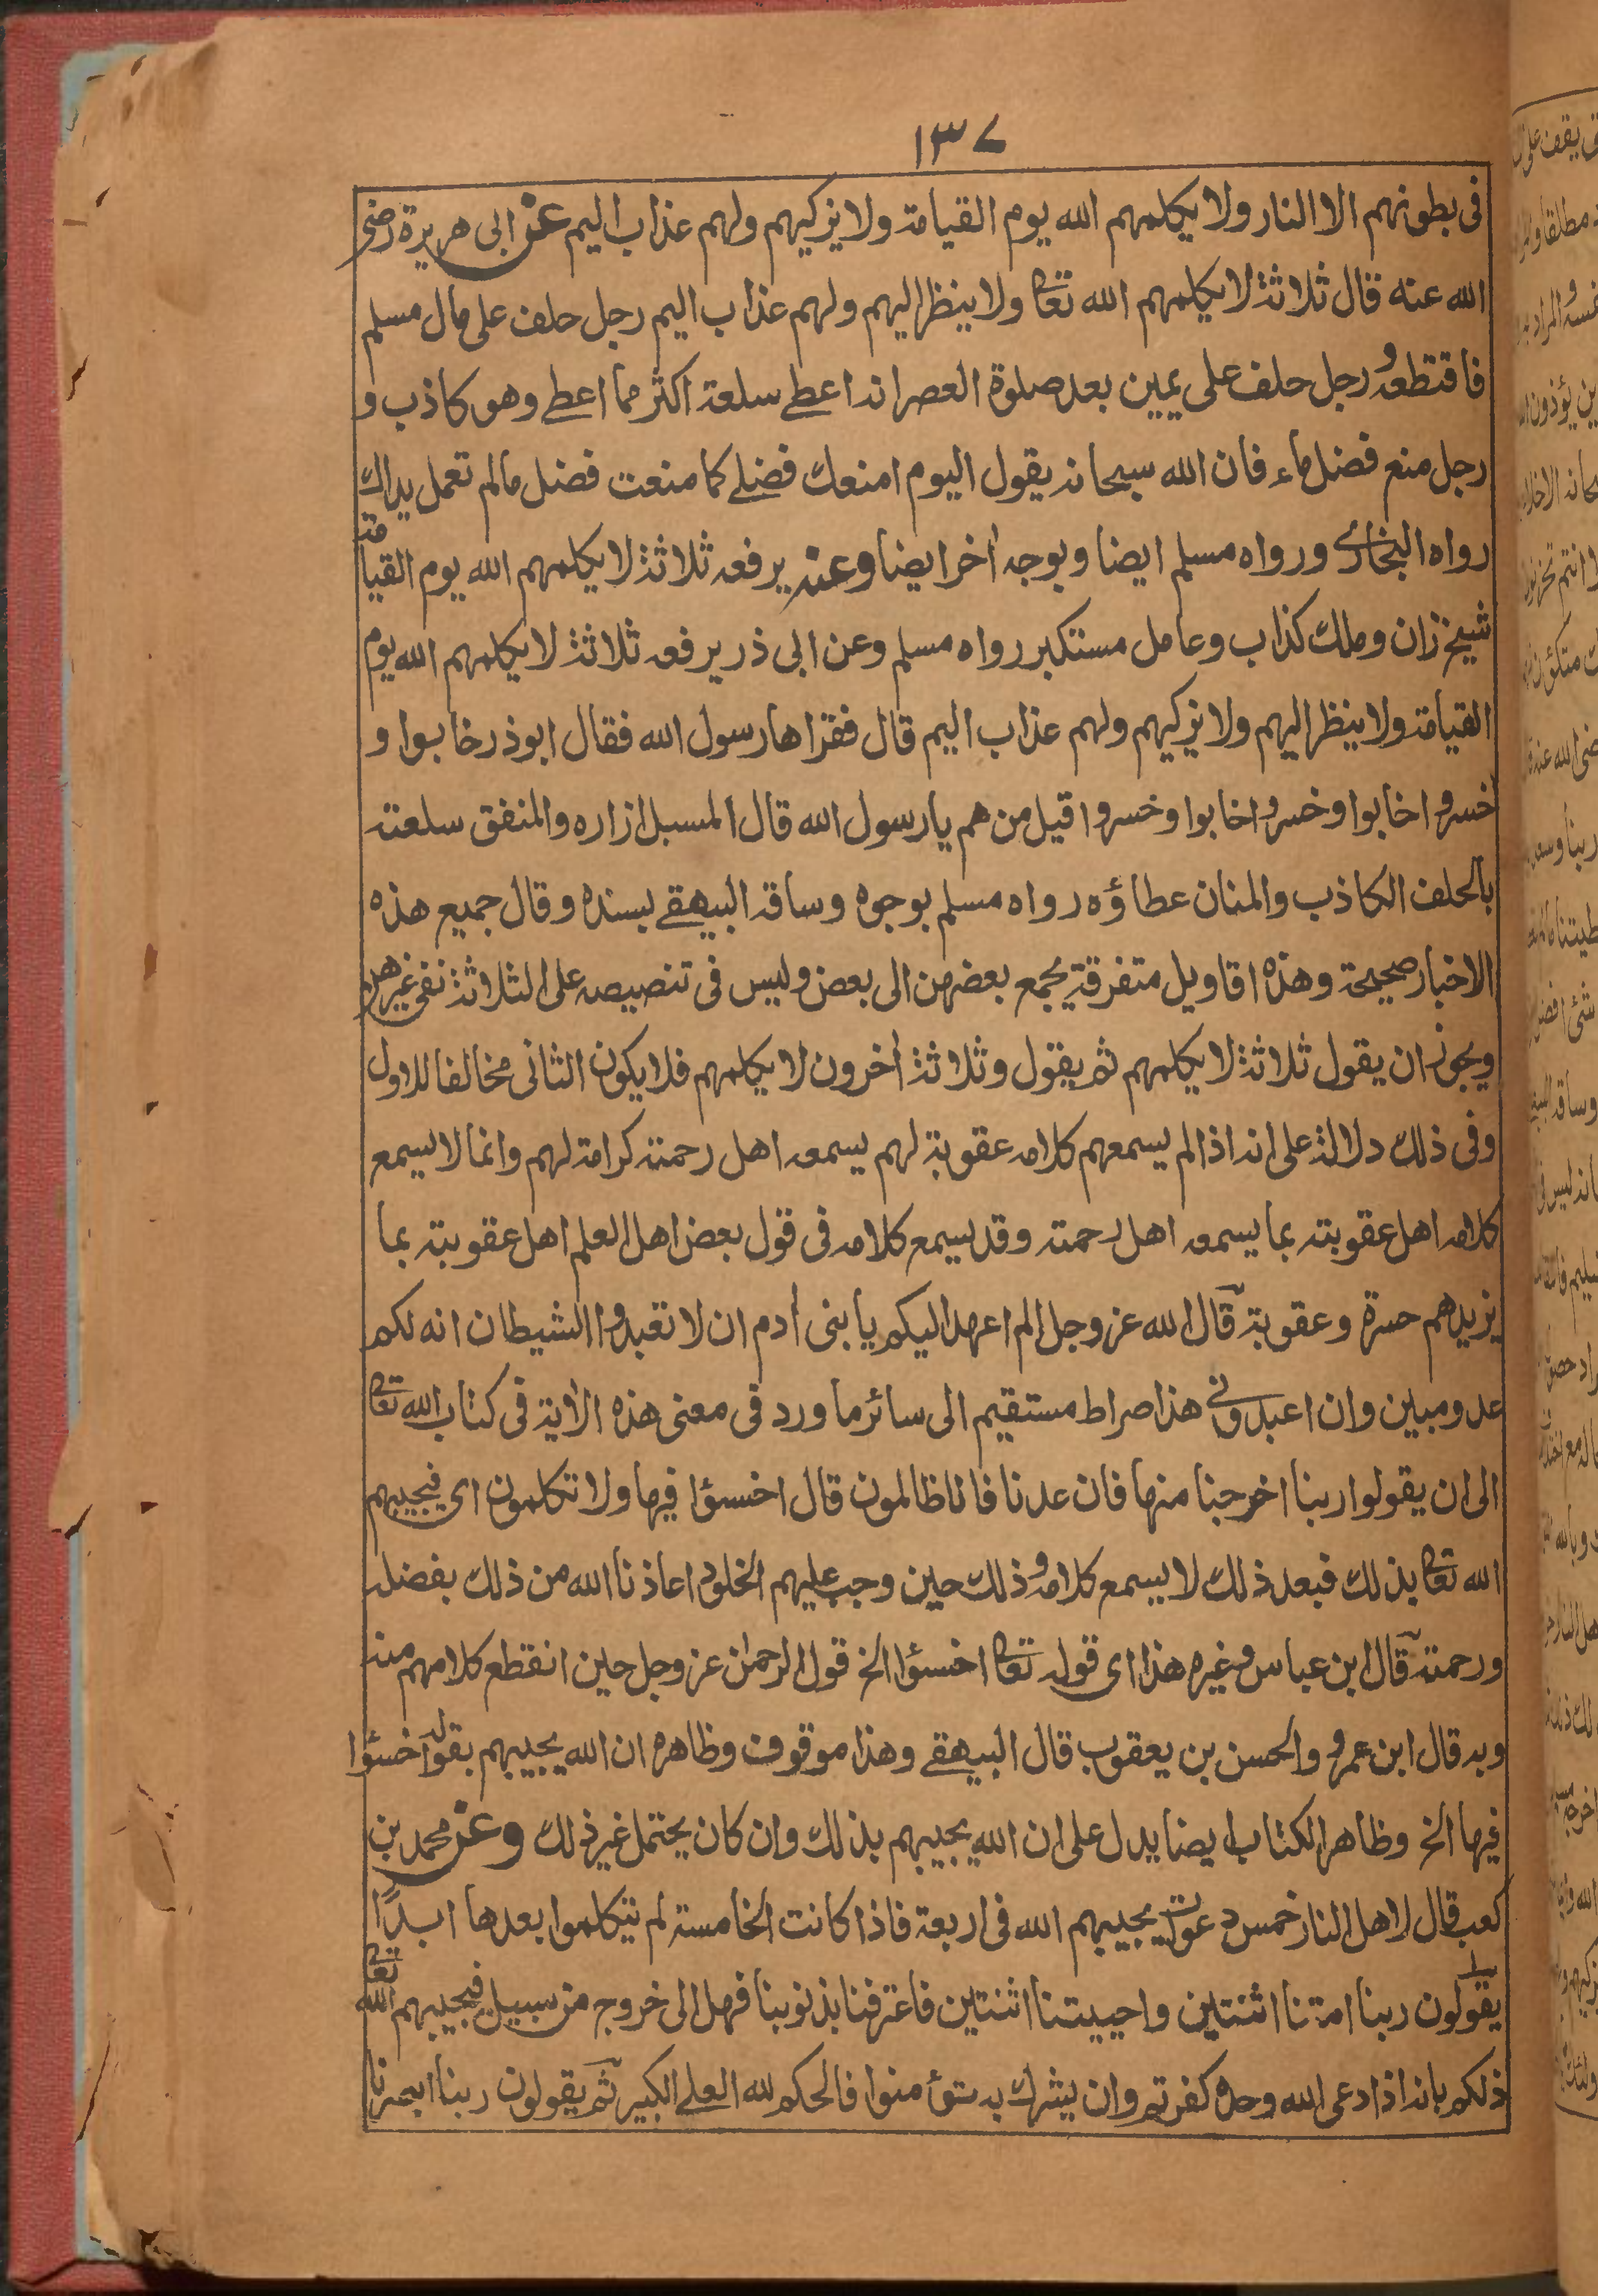 ١٣٧
فى بطونهم الا النار ولا يكلمهم الله يوم القيامة ولا يزكيهم ولهم عذاب اليم عن ابى هريرة رضى
الله عنه قال ثلاثة لا يكلمهم الله تعا ولا ينظر اليهم ولهم عذاب اليم رجل حلف على مال مسلم
فاقتطعه ورجل حلف على يمين بعد صلوة العصر انه اعطے سلعة اكثر مما اعطے وهو كاذب و
رجل منع فضل ماء فان الله سبحانه يقول اليوم امنعك فضلے كما منعت فضل مالم تعمل يداك
رواه البخارى ورواه مسلم ايضا وبوجه اٰخر ايضا وعنه يرفعه ثلاثة لا يكلمهم الله يوم القيامة
شيخ زان وملك كذاب وعامل مستكبر رواه مسلم وعن ابى ذر يرفعه ثلاثة لا يكلمهم الله يوم
القيامة ولا ينظر اليهم ولا يزكيهم ولهم عذاب اليم قال فقراها رسول الله فقال ابوذر خابوا و
خسروا خابوا وخسروا خابوا وخسروا قيل من هم يا رسول الله قال المسبل ازاره والمنفق سلعته
بالحلف الكاذب والمنان عطاؤه رواه مسلم بوجوه وساقه البيهقے بسنده وقال جميع هذه
الاخبار صحيحة وهذه اقاويل متفرقة يجمع بعضهن الى بعض وليس فى تنصيصه على الثلاثة نفى غيرهن
ويجوز ان يقول ثلاثة لا يكلمهم ثم يقول وثلاثة اٰخرون لا يكلمهم فلا يكون الثانى مخالفا للاول
وفى ذلك دلالة على انه اذا لم يسمعهم كلامه عقوبة لهم يسمعه اهل رحمته كرامة لهم وانما لا يسمع
كلامه اهل عقوبته بما يسمعه اهل رحمته وقد يسمع كلامه فى قول بعض اهل العلم اهل عقوبته بما
يزيدهم حسرة وعقوبة قال الله عز وجل الم اعهد اليكم يا بنى اٰدم ان لا تعبدوا الشيطان انه لكم
عدو مبين وان اعبدونى هذا صراط مستقيم الى سائر ما ورد فى معنى هذه الاٰية فى كتاب الله تعا
الى ان يقولوا ربنا اخرجنا منها فان عدنا فانا ظالمون قال اخسؤا فيها ولا تكلمون اى فيجيبهم
الله تعا بذلك فبعد ذلك لا يسمع كلامه وذلك حين وجب عليهم الخلود اعاذنا الله من ذلك بفضله
ورحمته قال ابن عباس وغيره هذا اى قوله تعا اخسؤا الخ قول الرحمٰن عز وجل حين انقطع كلامهم منه
وبه قال ابن عمرو والحسن بن يعقوب قال البيهقے وهذا موقوف وظاهره ان الله يجيبهم بقوله اخسؤا
فيها الخ وظاهر الكتاب ايضا يدل على ان الله يجيبهم بذلك وان كان يحتمل غير ذلك وعن محمد بن
كعب قال لاهل النار خمس دعوات يجيبهم الله فى اربعة فاذا كانت الخامسة لم يتكلموا بعدها ابدًا
يقولون ربنا امتنا اثنتين واحييتنا اثنتين فاعترفنا بذنوبنا فهل الى خروج من سبيل فيجيبهم الله تعا
ذلكم بانه اذا دعى الله وحده كفرتم وان يشرك به تؤمنوا فالحكم لله العلے الكبير ثم يقولون ربنا ابصرنا